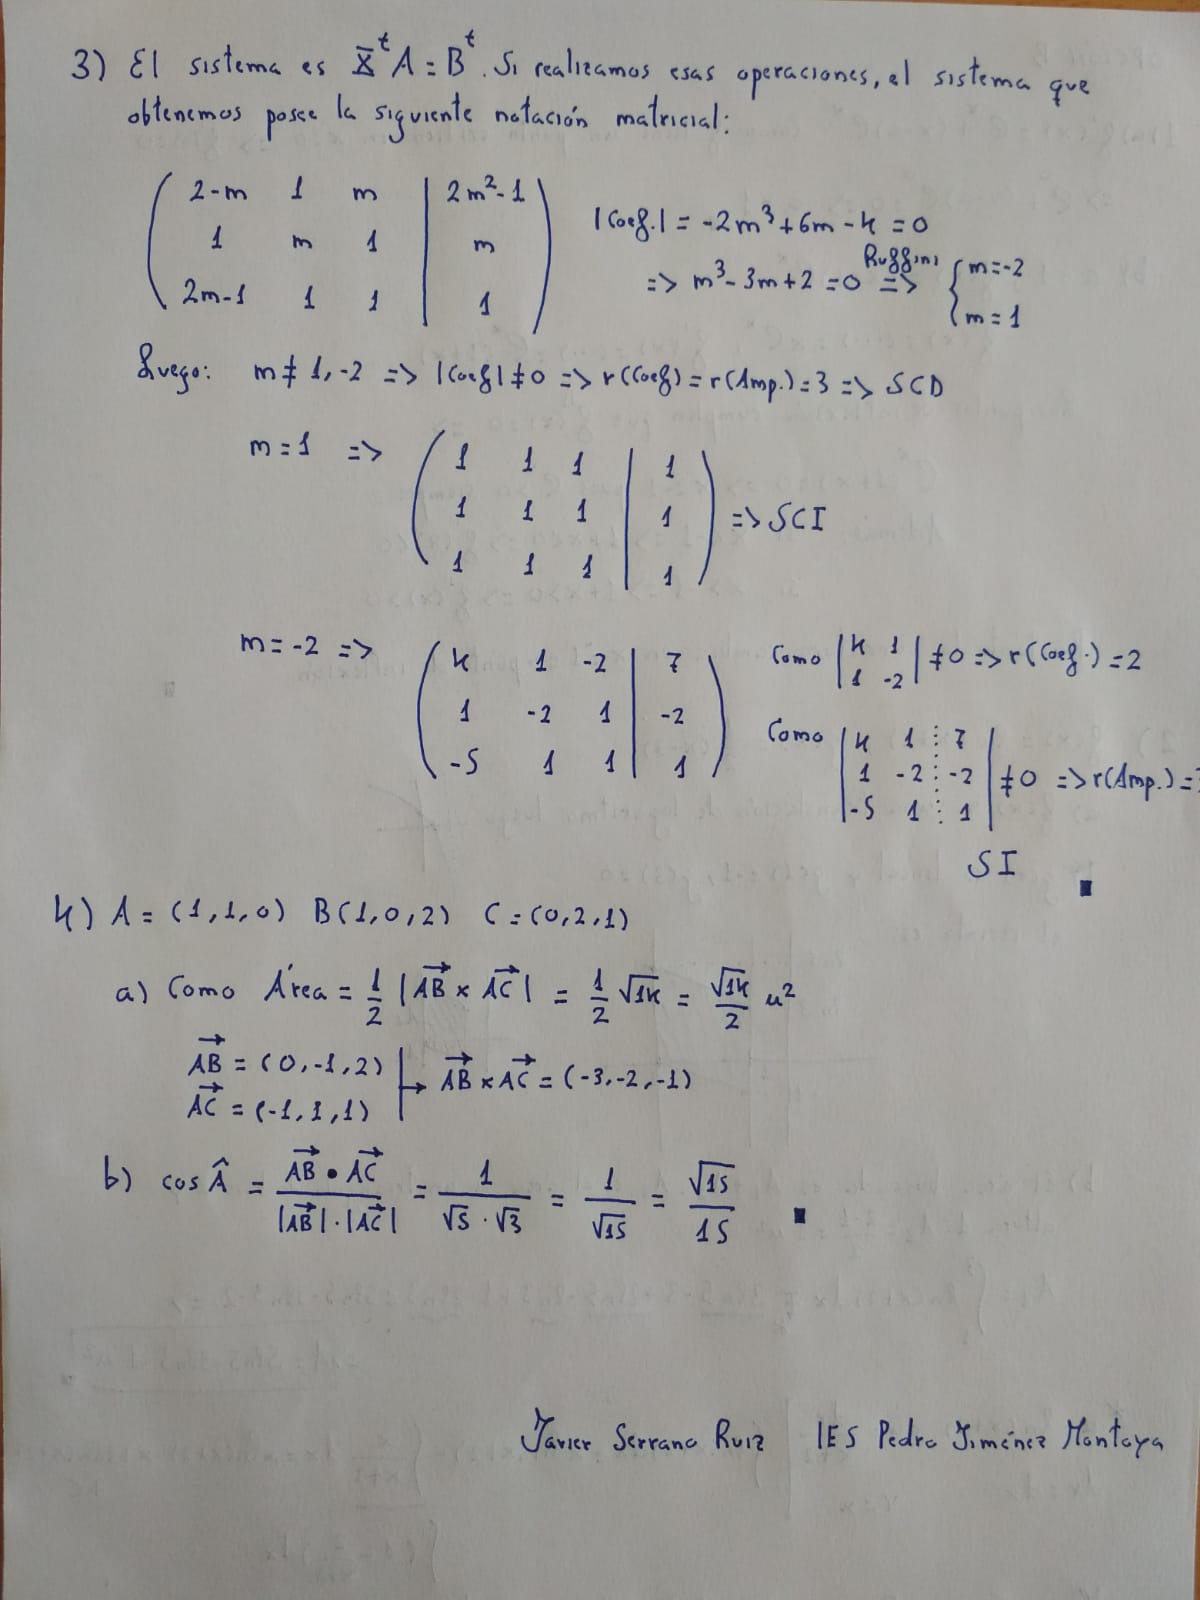 3) El sistema es X^t A = B^t. Si realizamos esas operaciones, el sistema que
obtenemos posee la siguiente notación matricial:
( 2-m 1 m | 2m²-1 )
( 1 m 1 | m )
( 2m-1 1 1 | 1 )
|Coef.| = -2m³+6m-4 = 0
=> m³-3m+2 = 0 Ruffini => { m=-2
m=1
Luego: m ≠ 1,-2 => |Coef| ≠ 0 => r(Coef) = r(Amp.) = 3 => SCD
m = 1 => ( 1 1 1 | 1 )
( 1 1 1 | 1 ) => SCI
( 1 1 1 | 1 )
m = -2 => ( 4 1 -2 | 7 )
( 1 -2 1 | -2 )
( -5 1 1 | 1 )
Como | 4 1 | ≠ 0 => r(Coef.) = 2
| 1 -2 |
Como | 4 1 ⋮ 7 |
| 1 -2 ⋮ -2 | ≠ 0 => r(Amp.) =
| -5 1 ⋮ 1 |
SI
4) A = (1,1,0) B(1,0,2) C = (0,2,1)
a) Como Área = 1/2 |AB x AC| = 1/2 √14 = √14/2 u²
AB = (0,-1,2)
AC = (-1,1,1)
AB x AC = (-3,-2,-1)
b) cos Â = AB • AC / |AB|·|AC| = 1/(√5 · √3) = 1/√15 = √15/15
Javier Serrano Ruiz IES Pedro Jiménez Montoya